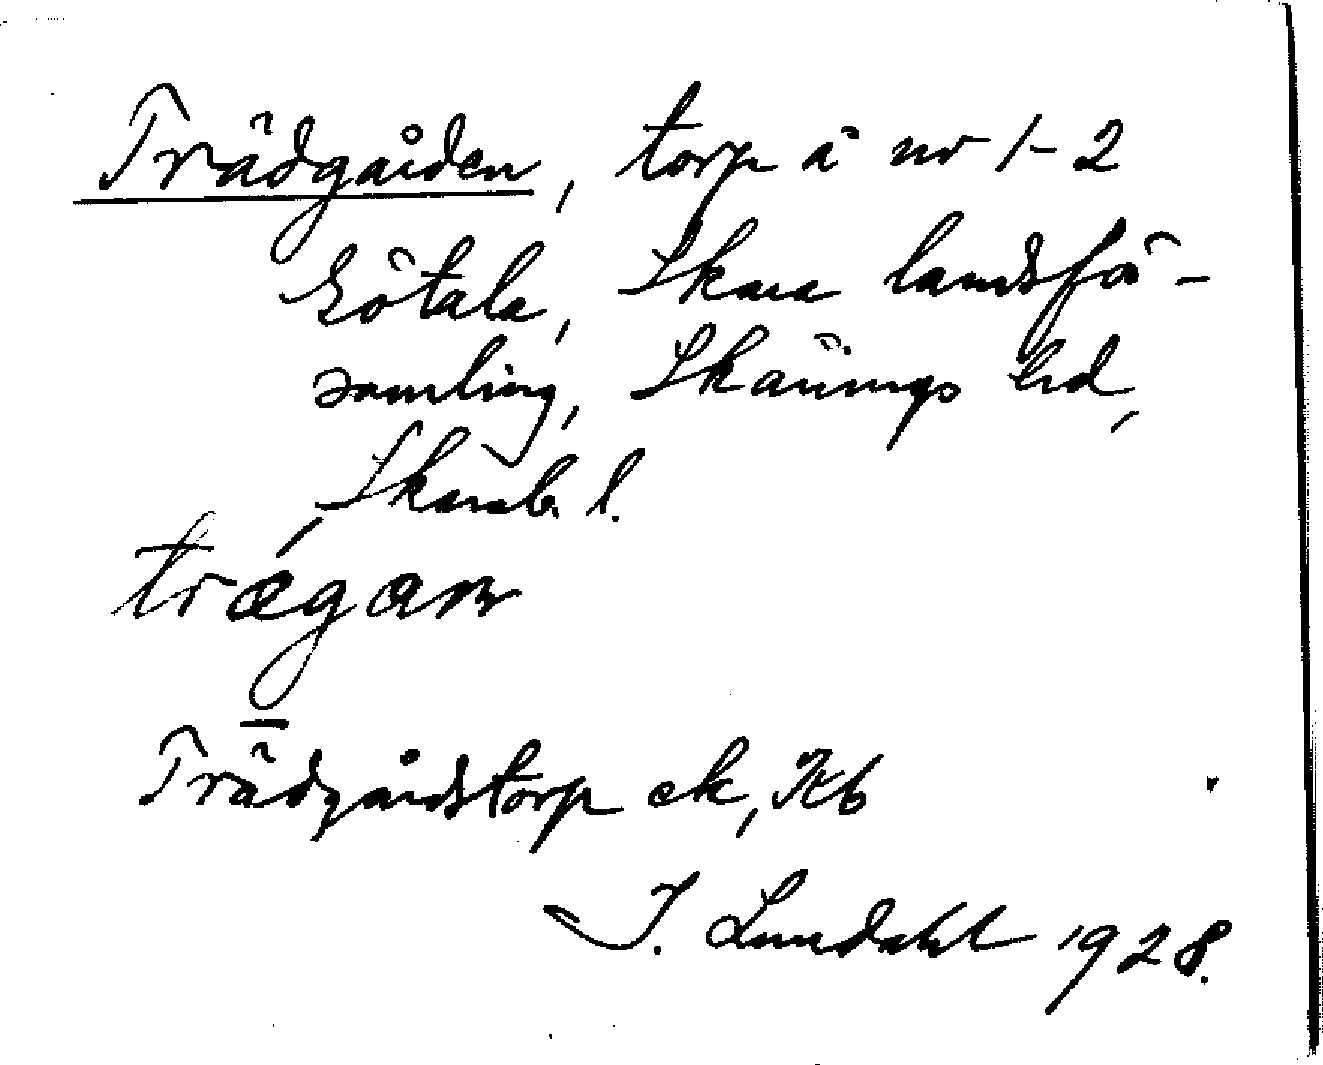 Trädgården, torp å nr 1-2
Götala, Skara landsför-
samling, Skånings hd,
Skarab. l.
trægan
Trädgårdstorp ek, Kb
I. Lundahl 1928.